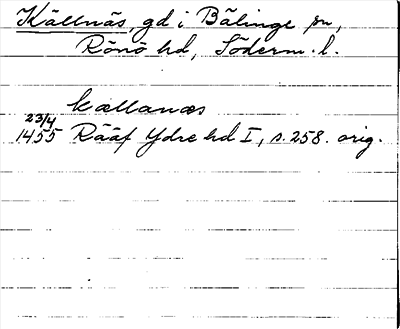 Källnäs, gd i Bälinge sn,
Rönö hd, Söderm. l.
kællanæs
23/4
1455 Rääf Ydre hd I, s. 258. orig.